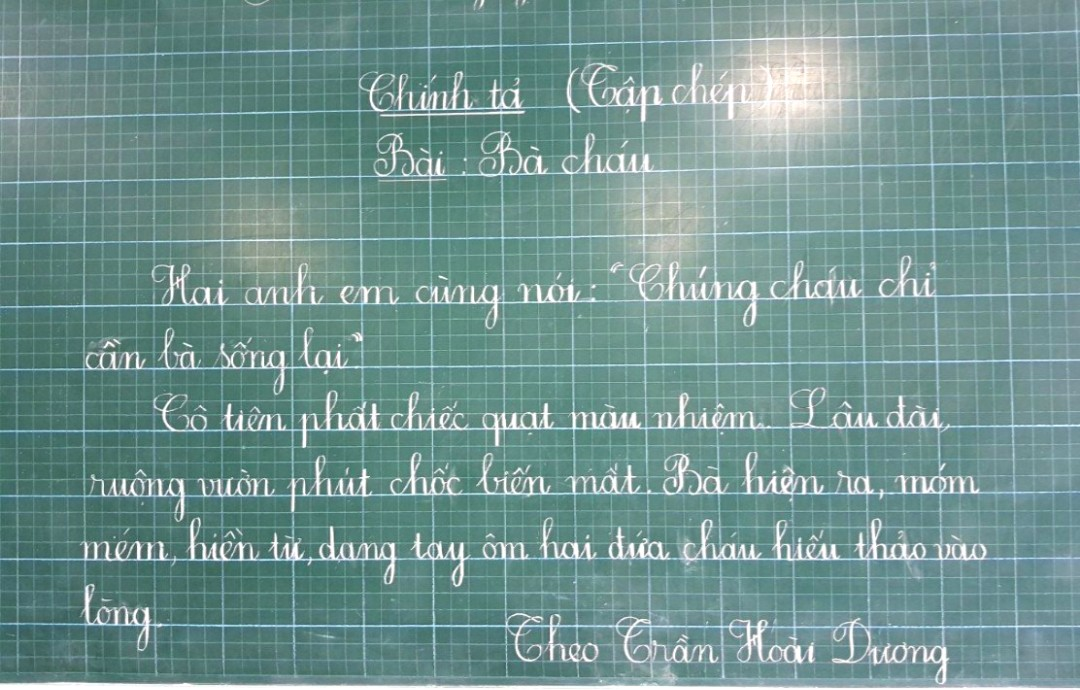 Chính tả (Tập chép)
Bài : Bà cháu
Hai anh em cùng nói: "Chúng cháu chỉ
cần bà sống lại"
Cô tiên phất chiếc quạt màu nhiệm. Lâu đài,
ruộng vườn phút chốc biến mất. Bà hiện ra, móm
mém, hiền từ, dang tay ôm hai đứa cháu hiếu thảo vào
lòng.
Theo Trần Hoài Dương